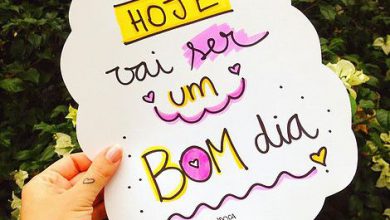 HOJE
vai ser
um
BOM dia